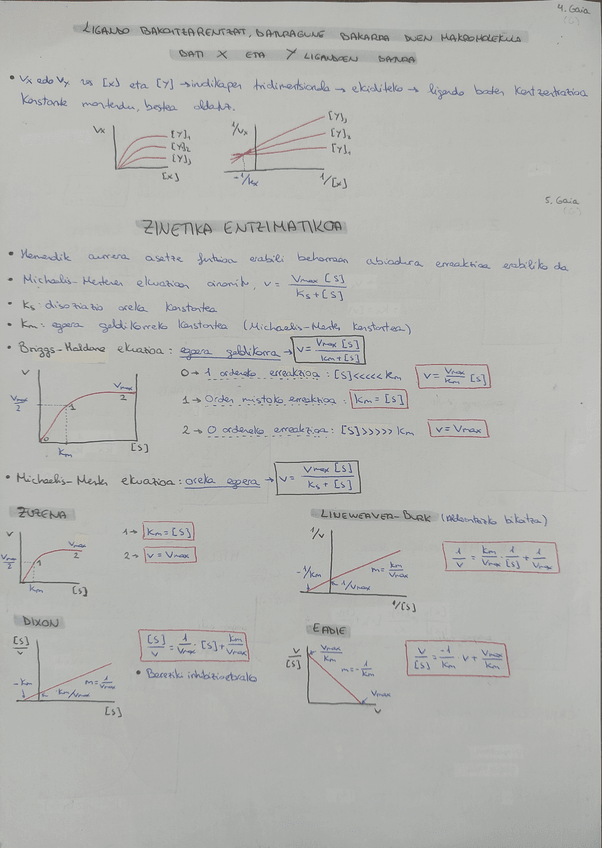 4. Gaia
LIGANDO BAKOITZARENTZAT, DATRAGUNE BAKARRA DUEN MAKROMOLEKULA
BATI X ETA Y LIGANDOEN DATURA
• Vx edo Vy vs [x] eta [Y] → irudikapen tridimentsionala → ekiditeko → ligando baten kontzentrazioa
konstante mantendu, bestea aldatz.
Vx [Y]1 [Y]2 [Y]3 [x]
1/Vx [Y]3 [Y]2 [Y]1 -1/Kx 1/[x]
5. Gaia
ZINETIKA ENTZIMATIKOA
• Hemendik aurrera asetze funtzioa erabili beharrean abiadura erreakzioa erabiliko da
• Michaelis-Menten ekuazioan oinarrituz, v = Vmax [S] / Ks + [S]
• Ks: disoziazio oreka konstantea
• Km: egoera geldikorreko konstantea (Michaelis-Menten konstantea)
• Briggs-Haldane ekuazioa: egoera geldikorra → v = Vmax [S] / Km + [S]
V Vmax Vmax/2 0 1 2 Km [S]
0 → 1 ordeneko erreakzioa: [S] <<<<< Km v = Vmax/Km [S]
1 → Orden mistoko erreakzioa: Km = [S]
2 → 0 ordeneko erreakzioa: [S] >>>>> Km v = Vmax
• Michaelis-Menten ekuazioa: oreka egoera → v = Vmax [S] / Ks + [S]
ZUZENA
V Vmax Vmax/2 1 2 Km [S]
1 → Km = [S]
2 → v = Vmax
LINEWEAVER-BURK (Alderantzizko bikoitza)
1/v -1/Km 1/Vmax m = Km/Vmax 1/[S]
1/v = Km/Vmax · 1/[S] + 1/Vmax
DIXON
[S]/v -Km Km/Vmax m = 1/Vmax [S]
[S]/v = 1/Vmax · [S] + Km/Vmax
• Bereziki inhibizioetarako
EADIE
V/[S] Vmax/Km m = -1/Km Vmax v
V/[S] = -1/Km · v + Vmax/Km